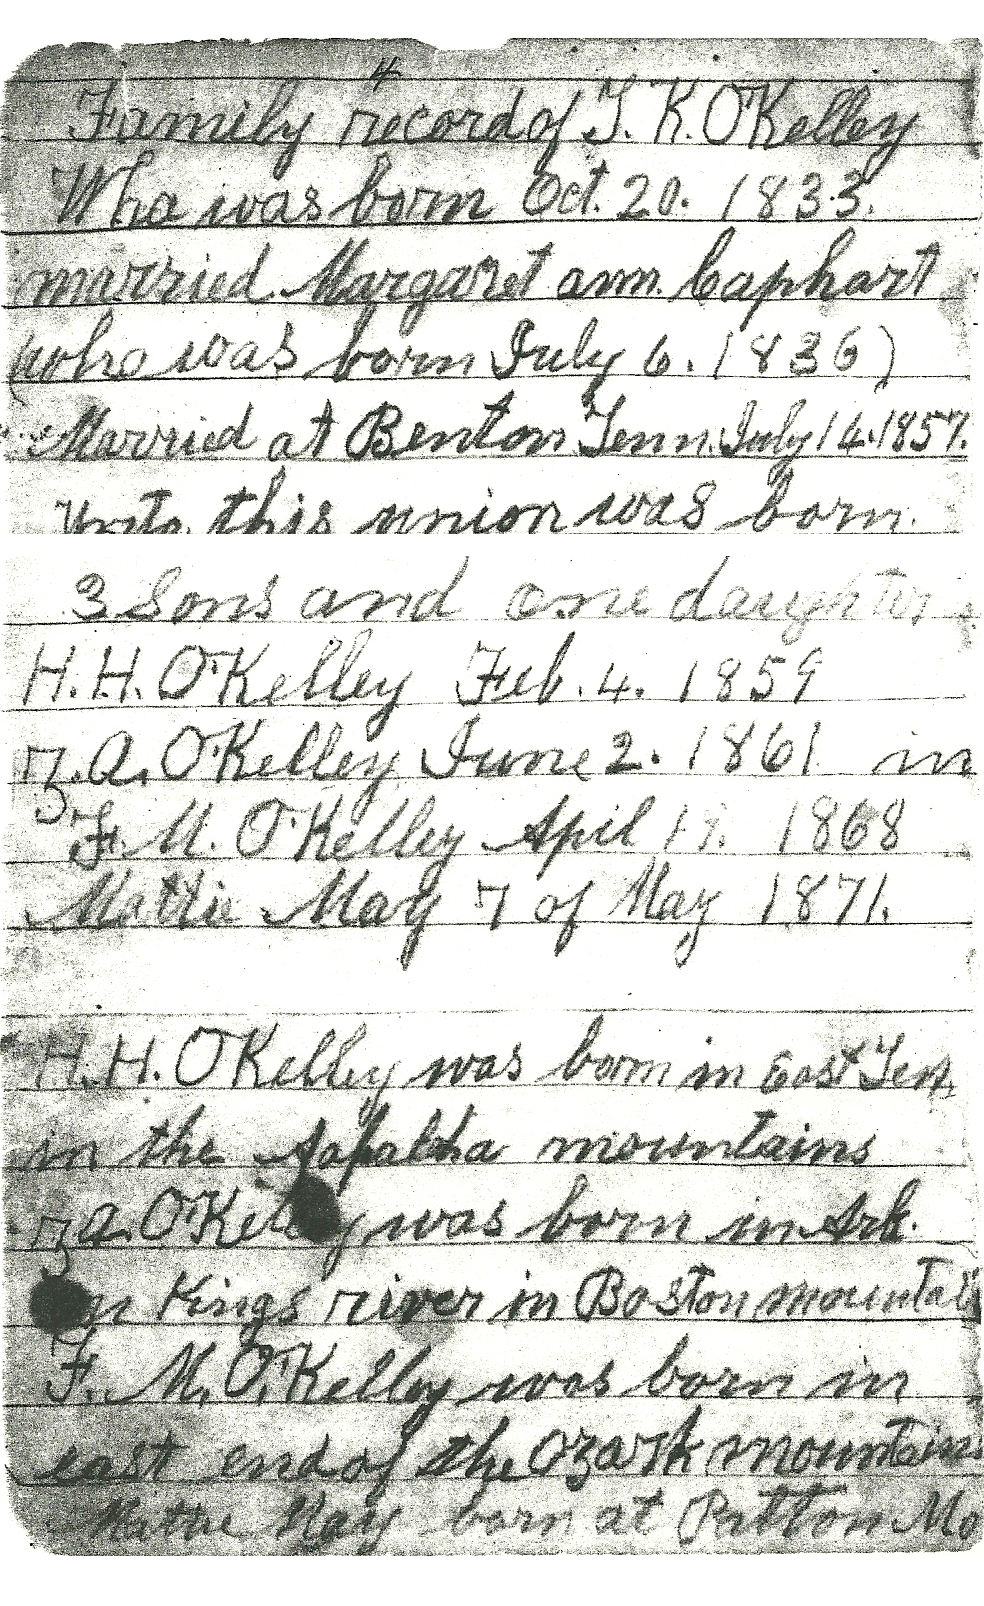 4
Family record of T. K. O'Kelley
Who was born Oct. 20. 1833.
married Margaret ann. Caphart
(who was born July 6. 1836)
Married at Benton Tenn. July 14. 1857.
Unto this union was born.
3 Sons and one daughter
H. H. O'Kelley Feb. 4. 1859
Z. A. O'Kelley June 2. 1861 in
F. M. O'Kelley April 19. 1868
Mattie May 7 of May 1871.
H. H. O'Kelley was born in East Ten.
in the mountains
Z A. O'Kelley was born in Ark.
on Kings river in Boston mountain
F. M. O'Kelley was born in
east end of the Ozark mountains
Mattie May born at Patton Mo